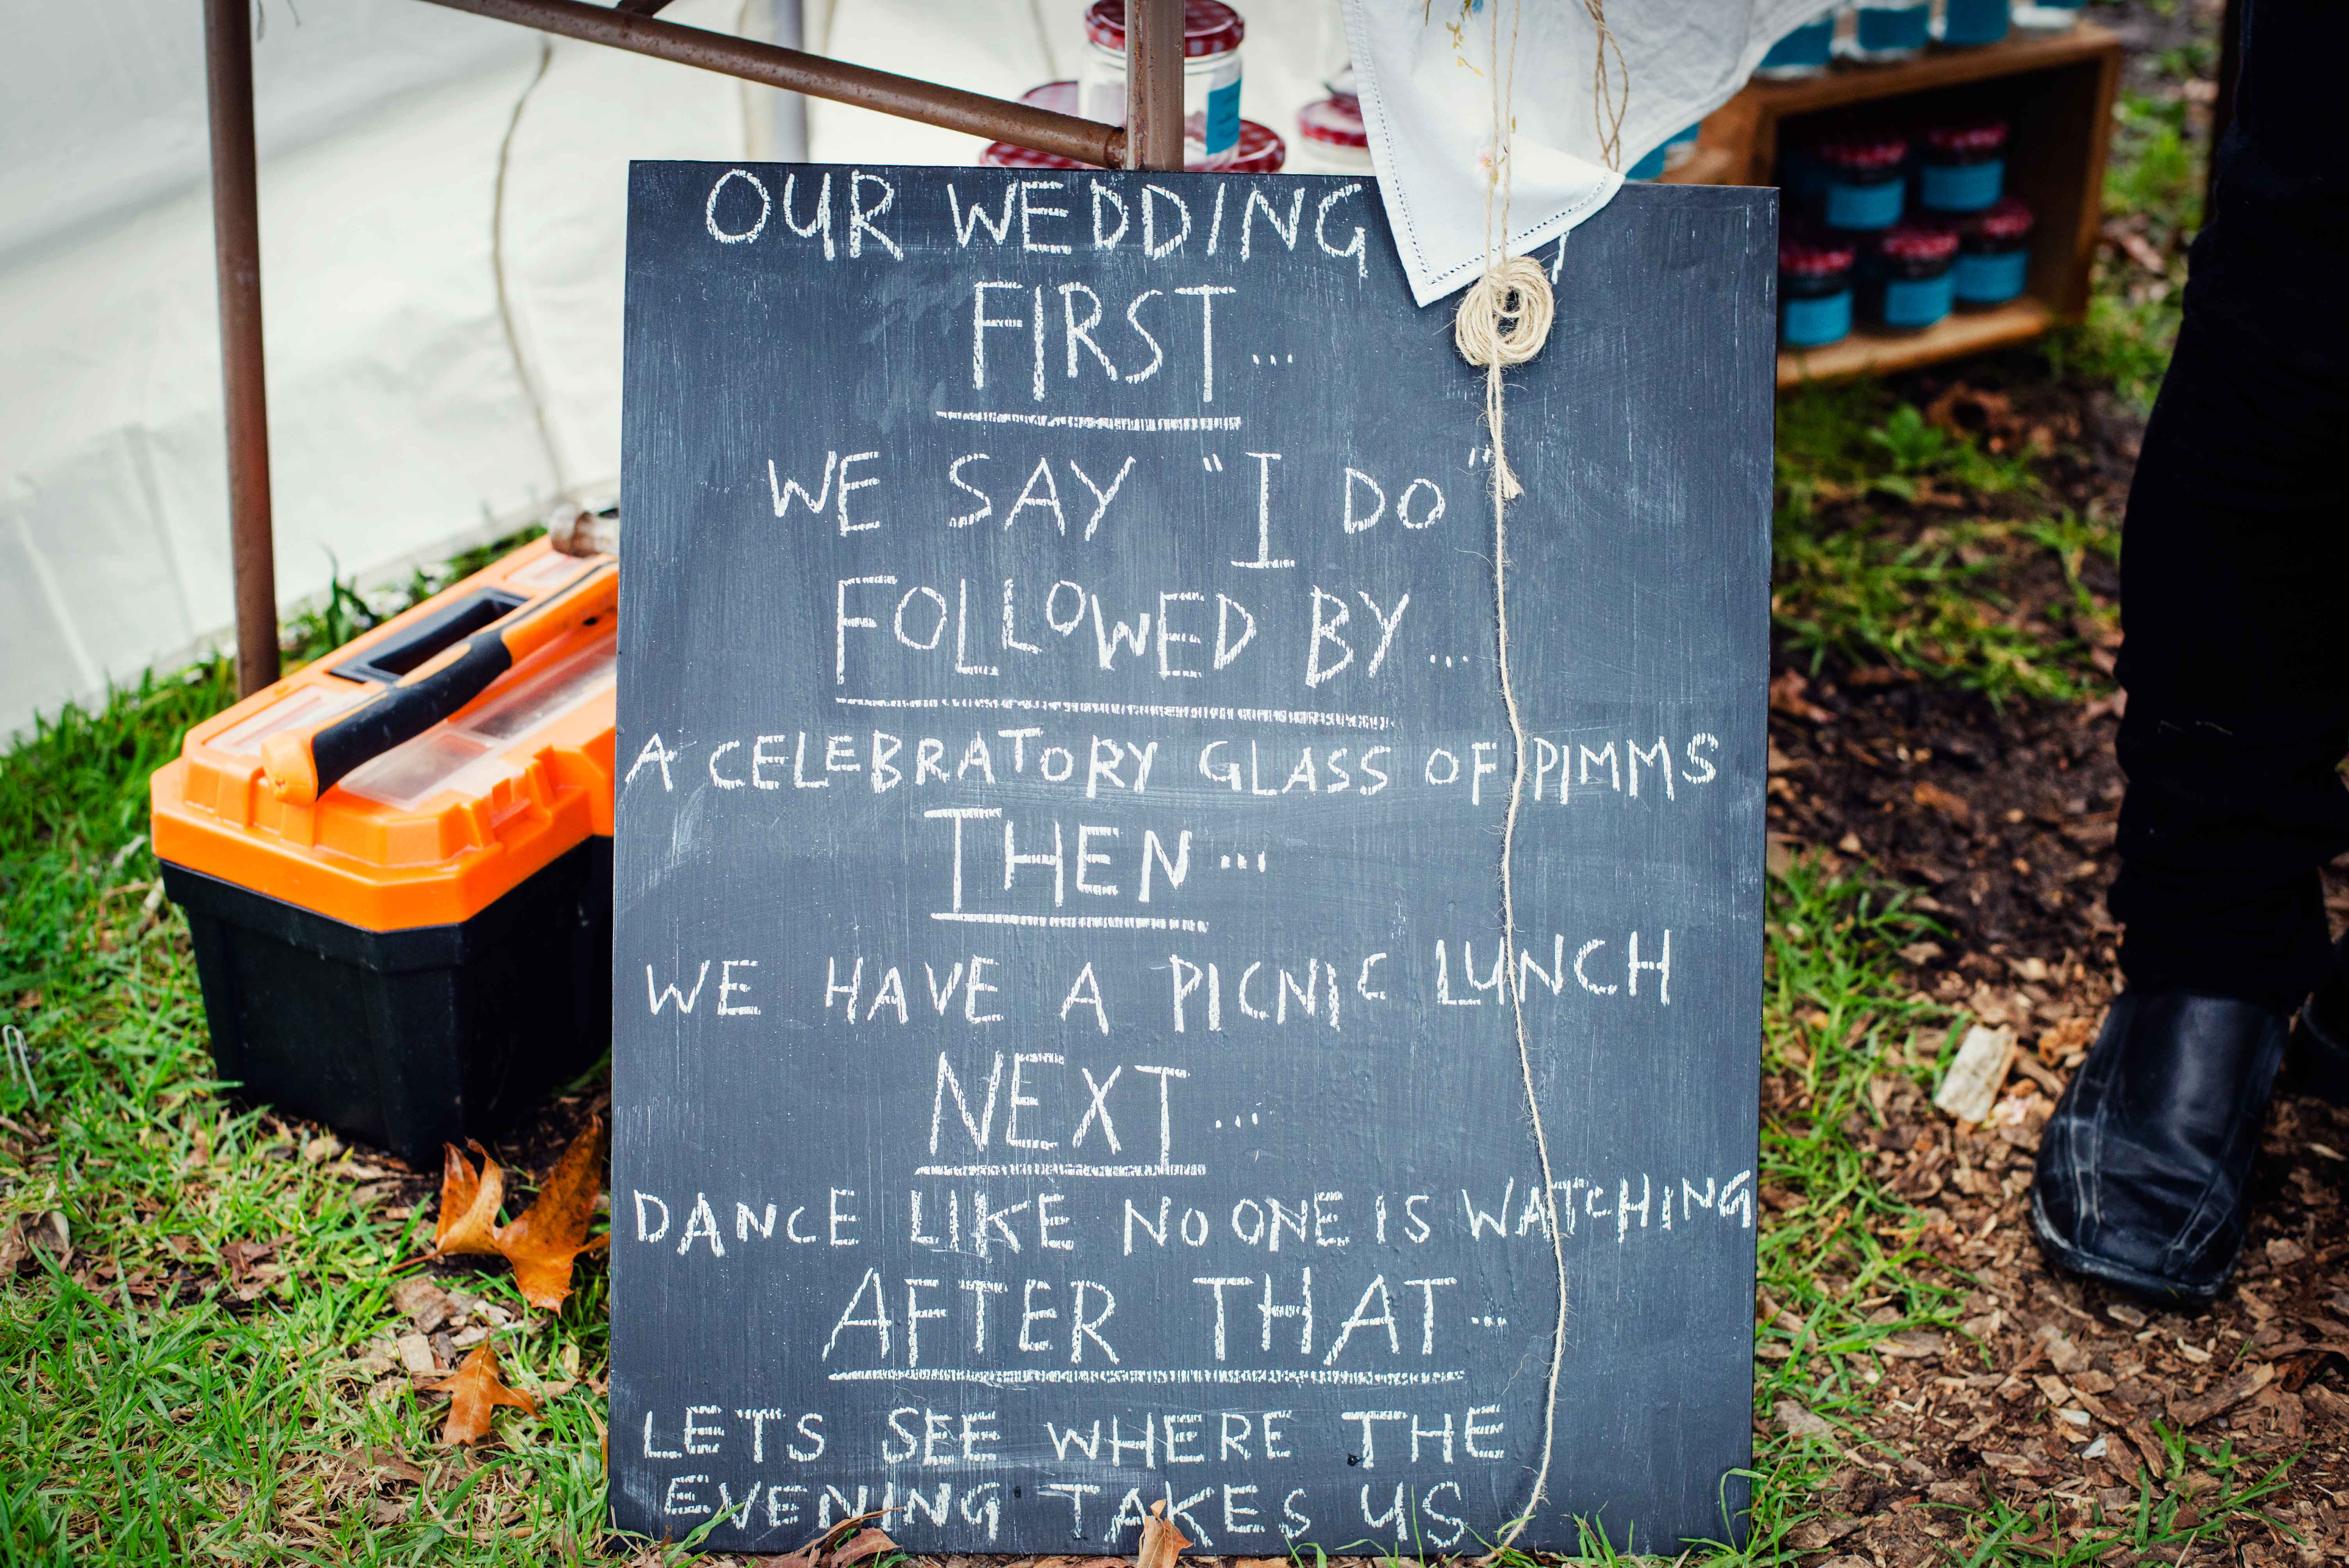 OUR WEDDING
FIRST...
WE SAY "I DO"
FOLLOWED BY...
A CELEBRATORY GLASS OF PIMMS
THEN...
WE HAVE A PICNIC LUNCH
NEXT...
DANCE LIKE NO ONE IS WATCHING
AFTER THAT...
LETS SEE WHERE THE
EVENING TAKES US